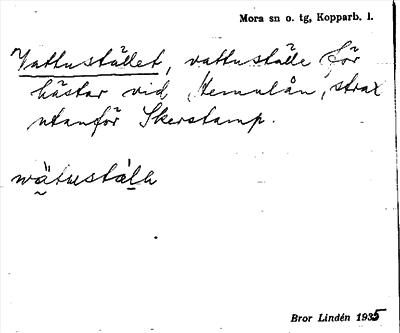 Mora sn o. tg, Kopparb. l.
Vattustället, vattuställe för
hästar vid Hemulån, strax
utanför Skerstamp.
wätustäln
Bror Lindén 1935